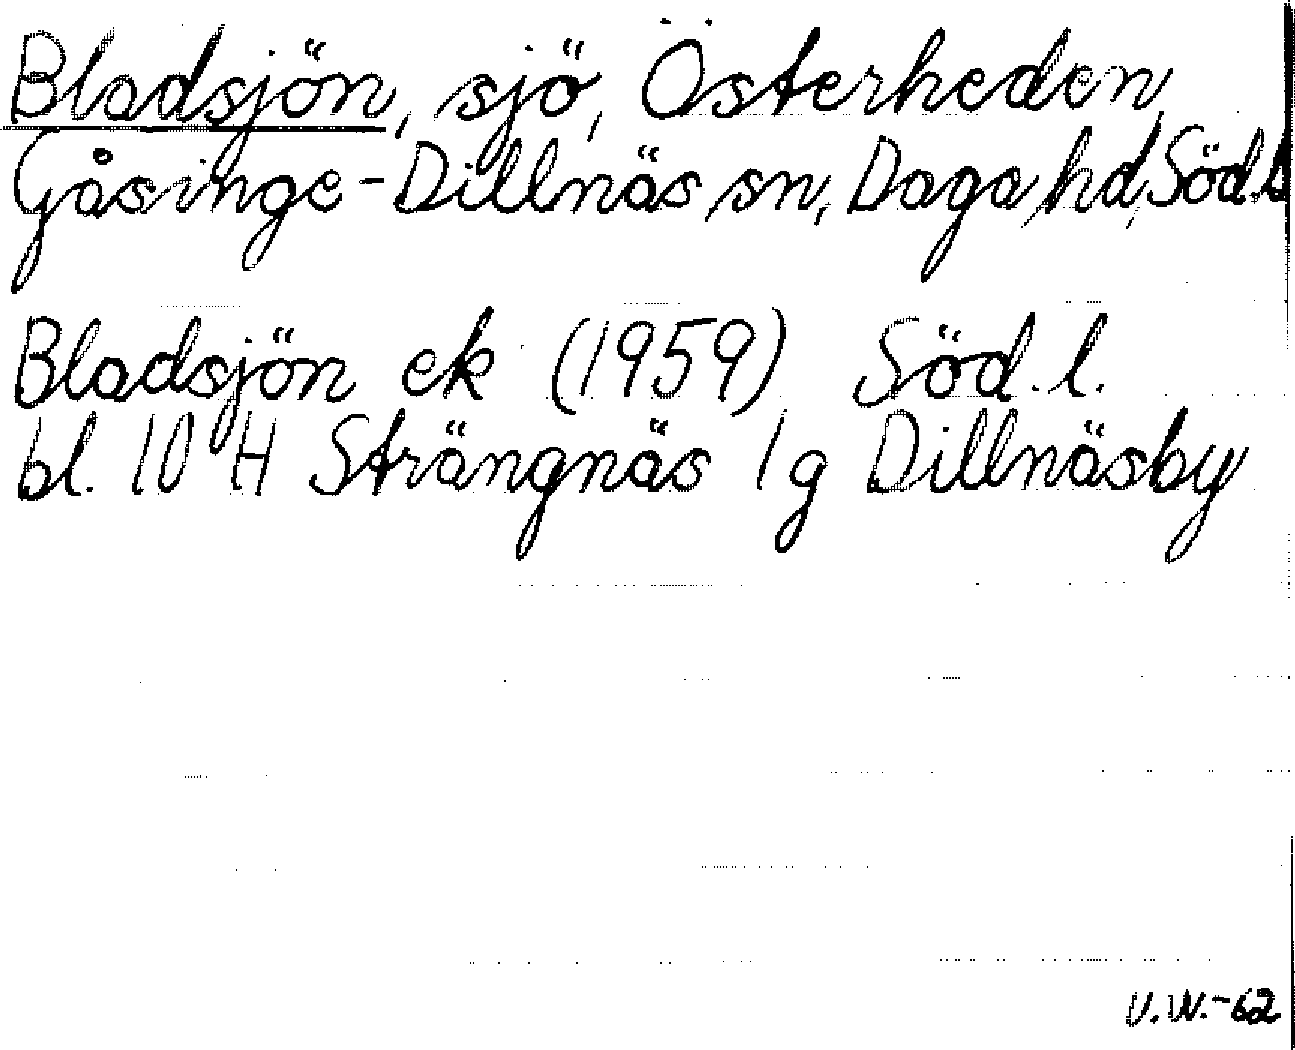 Bladsjön, sjö, Österheden,
Gåsinge-Dillnäs sn, Daga hd, Söd.l
Bladsjön ek (1959) Söd.l.
bl. 10 H Strängnäs 1 g Dillnäsby
U.W.-62